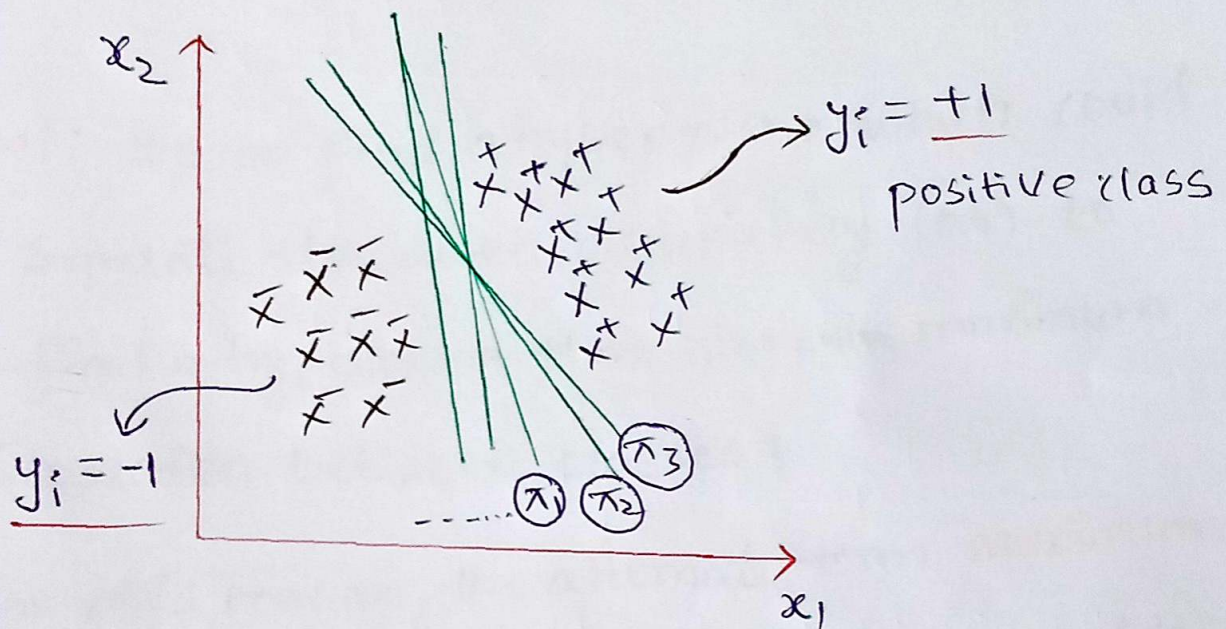 x₂
yᵢ = +1
positive class
yᵢ = -1
π₁ π₂ π₃
x₁